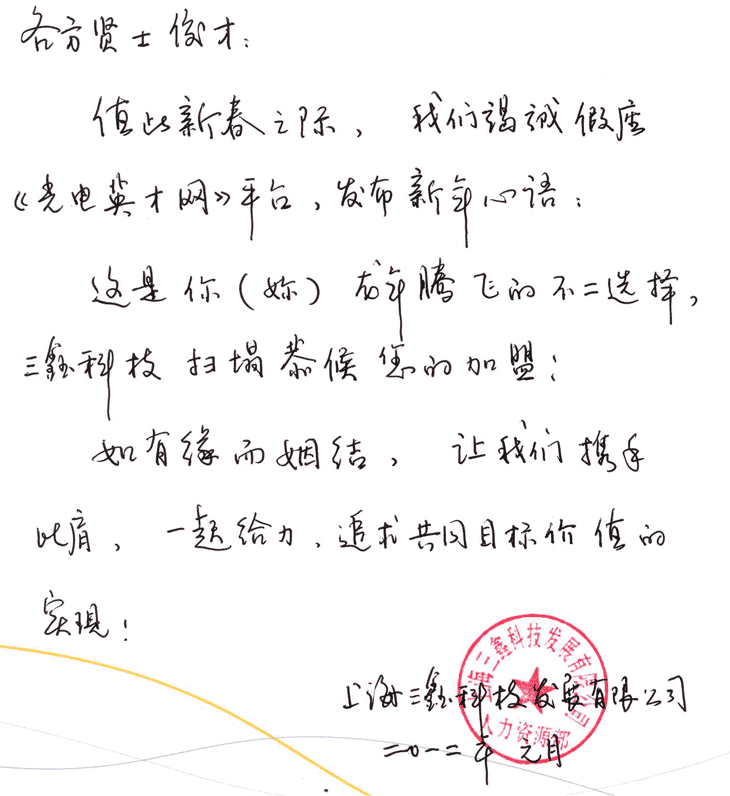 各方贤士俊才：
值此新春之际，我们竭诚假座
《光电英才网》平台，发布新年心语：
这是你（妳）龙年腾飞的不二选择，
三鑫科技扫榻恭候您的加盟；
如有缘而姻结，让我们携手
比肩，一起给力、追求共同目标价值的
实现！
上海三鑫科技发展有限公司
二〇一二年 元月
上海三鑫科技发展有限公司
人力资源部